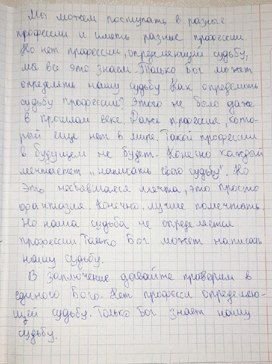 Мы можем поступать в разные
профессии и иметь разные профессии.
Но нет профессии, определяющий судьбу,
мы все это знаем. Только Бог может
определить нашу судьбу. Как определить
судьбу профессии? Этого не было даже
в прошлом веке. Даже професия кото-
рый еще нет в мире. Такой професии
в будущем не будет. Конечно каждый
мечтает „написать свою судьбу". Но
это несбывшаяся мечта, это просто
фантазия. Конечно лучше помечтать.
Но наша судьба не определяется
професии. Только Бог может написать
нашу судьбу.
В заключение давайте проверим в
единого Бога. Нет професи определяю-
щей судьбу. Только Бог знает нашу
судьбу.